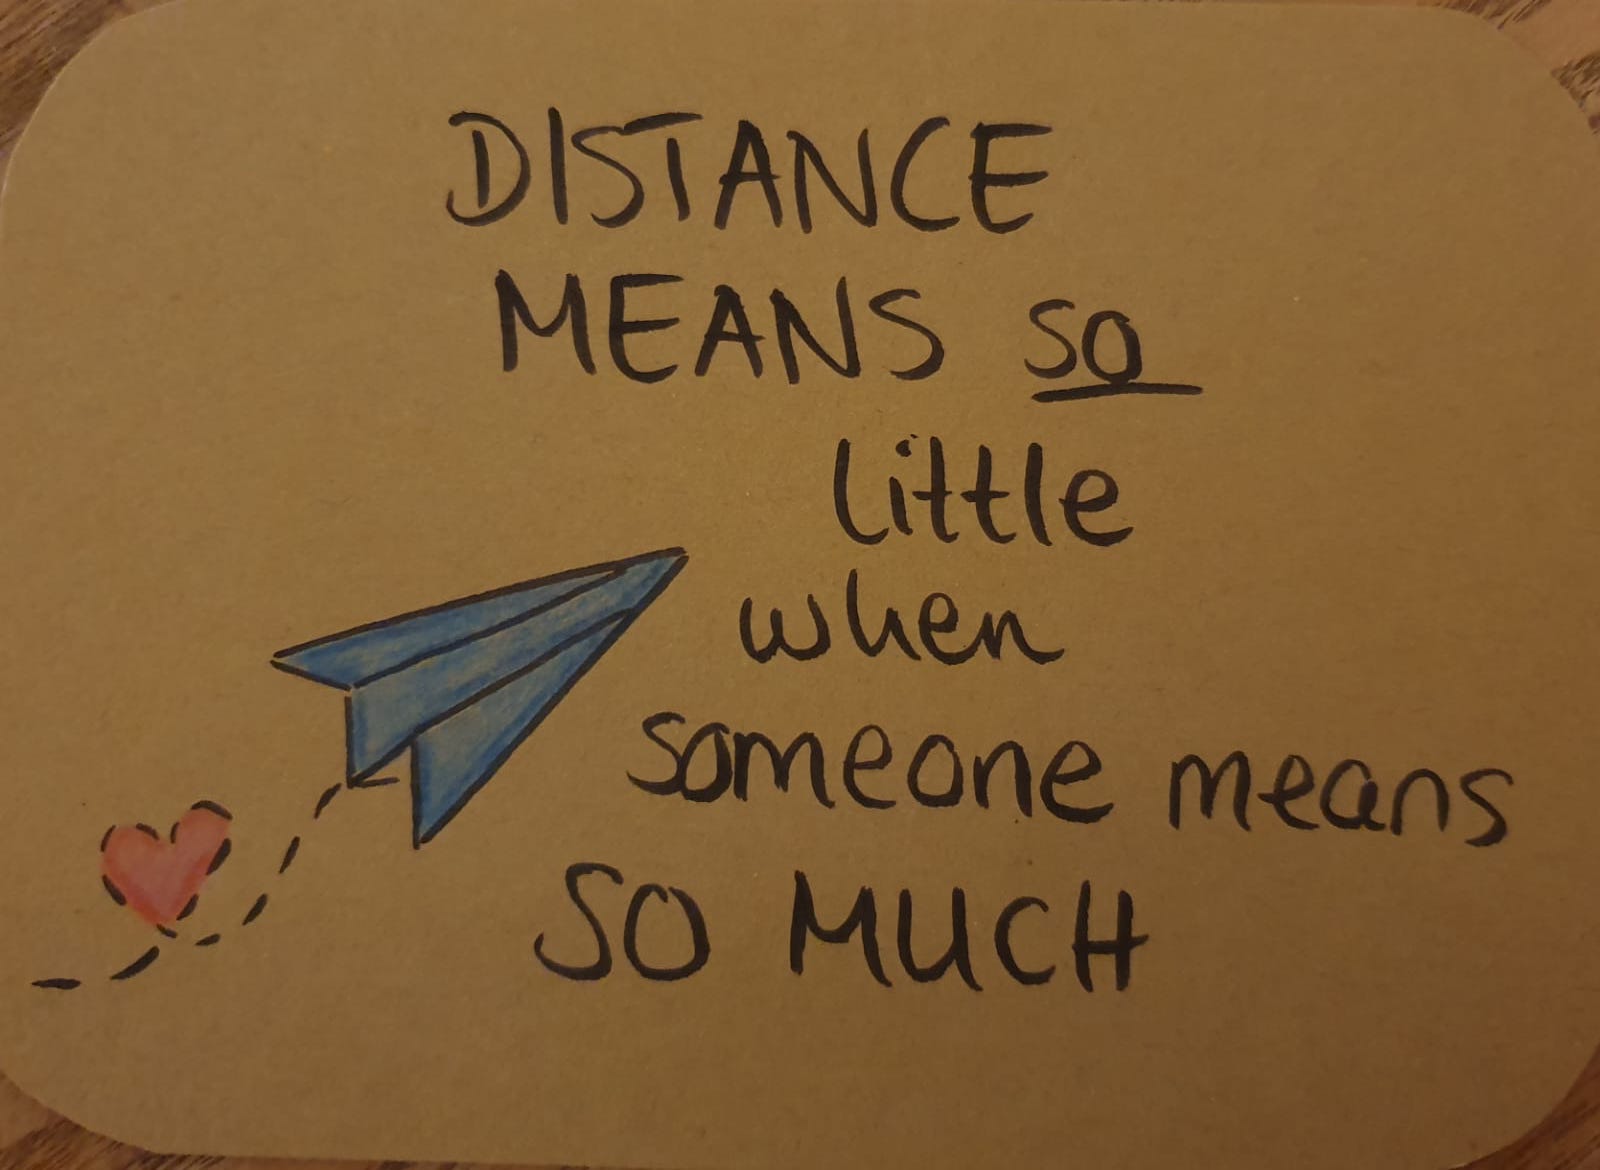 DISTANCE
MEANS so
little
when
someone means
SO MUCH